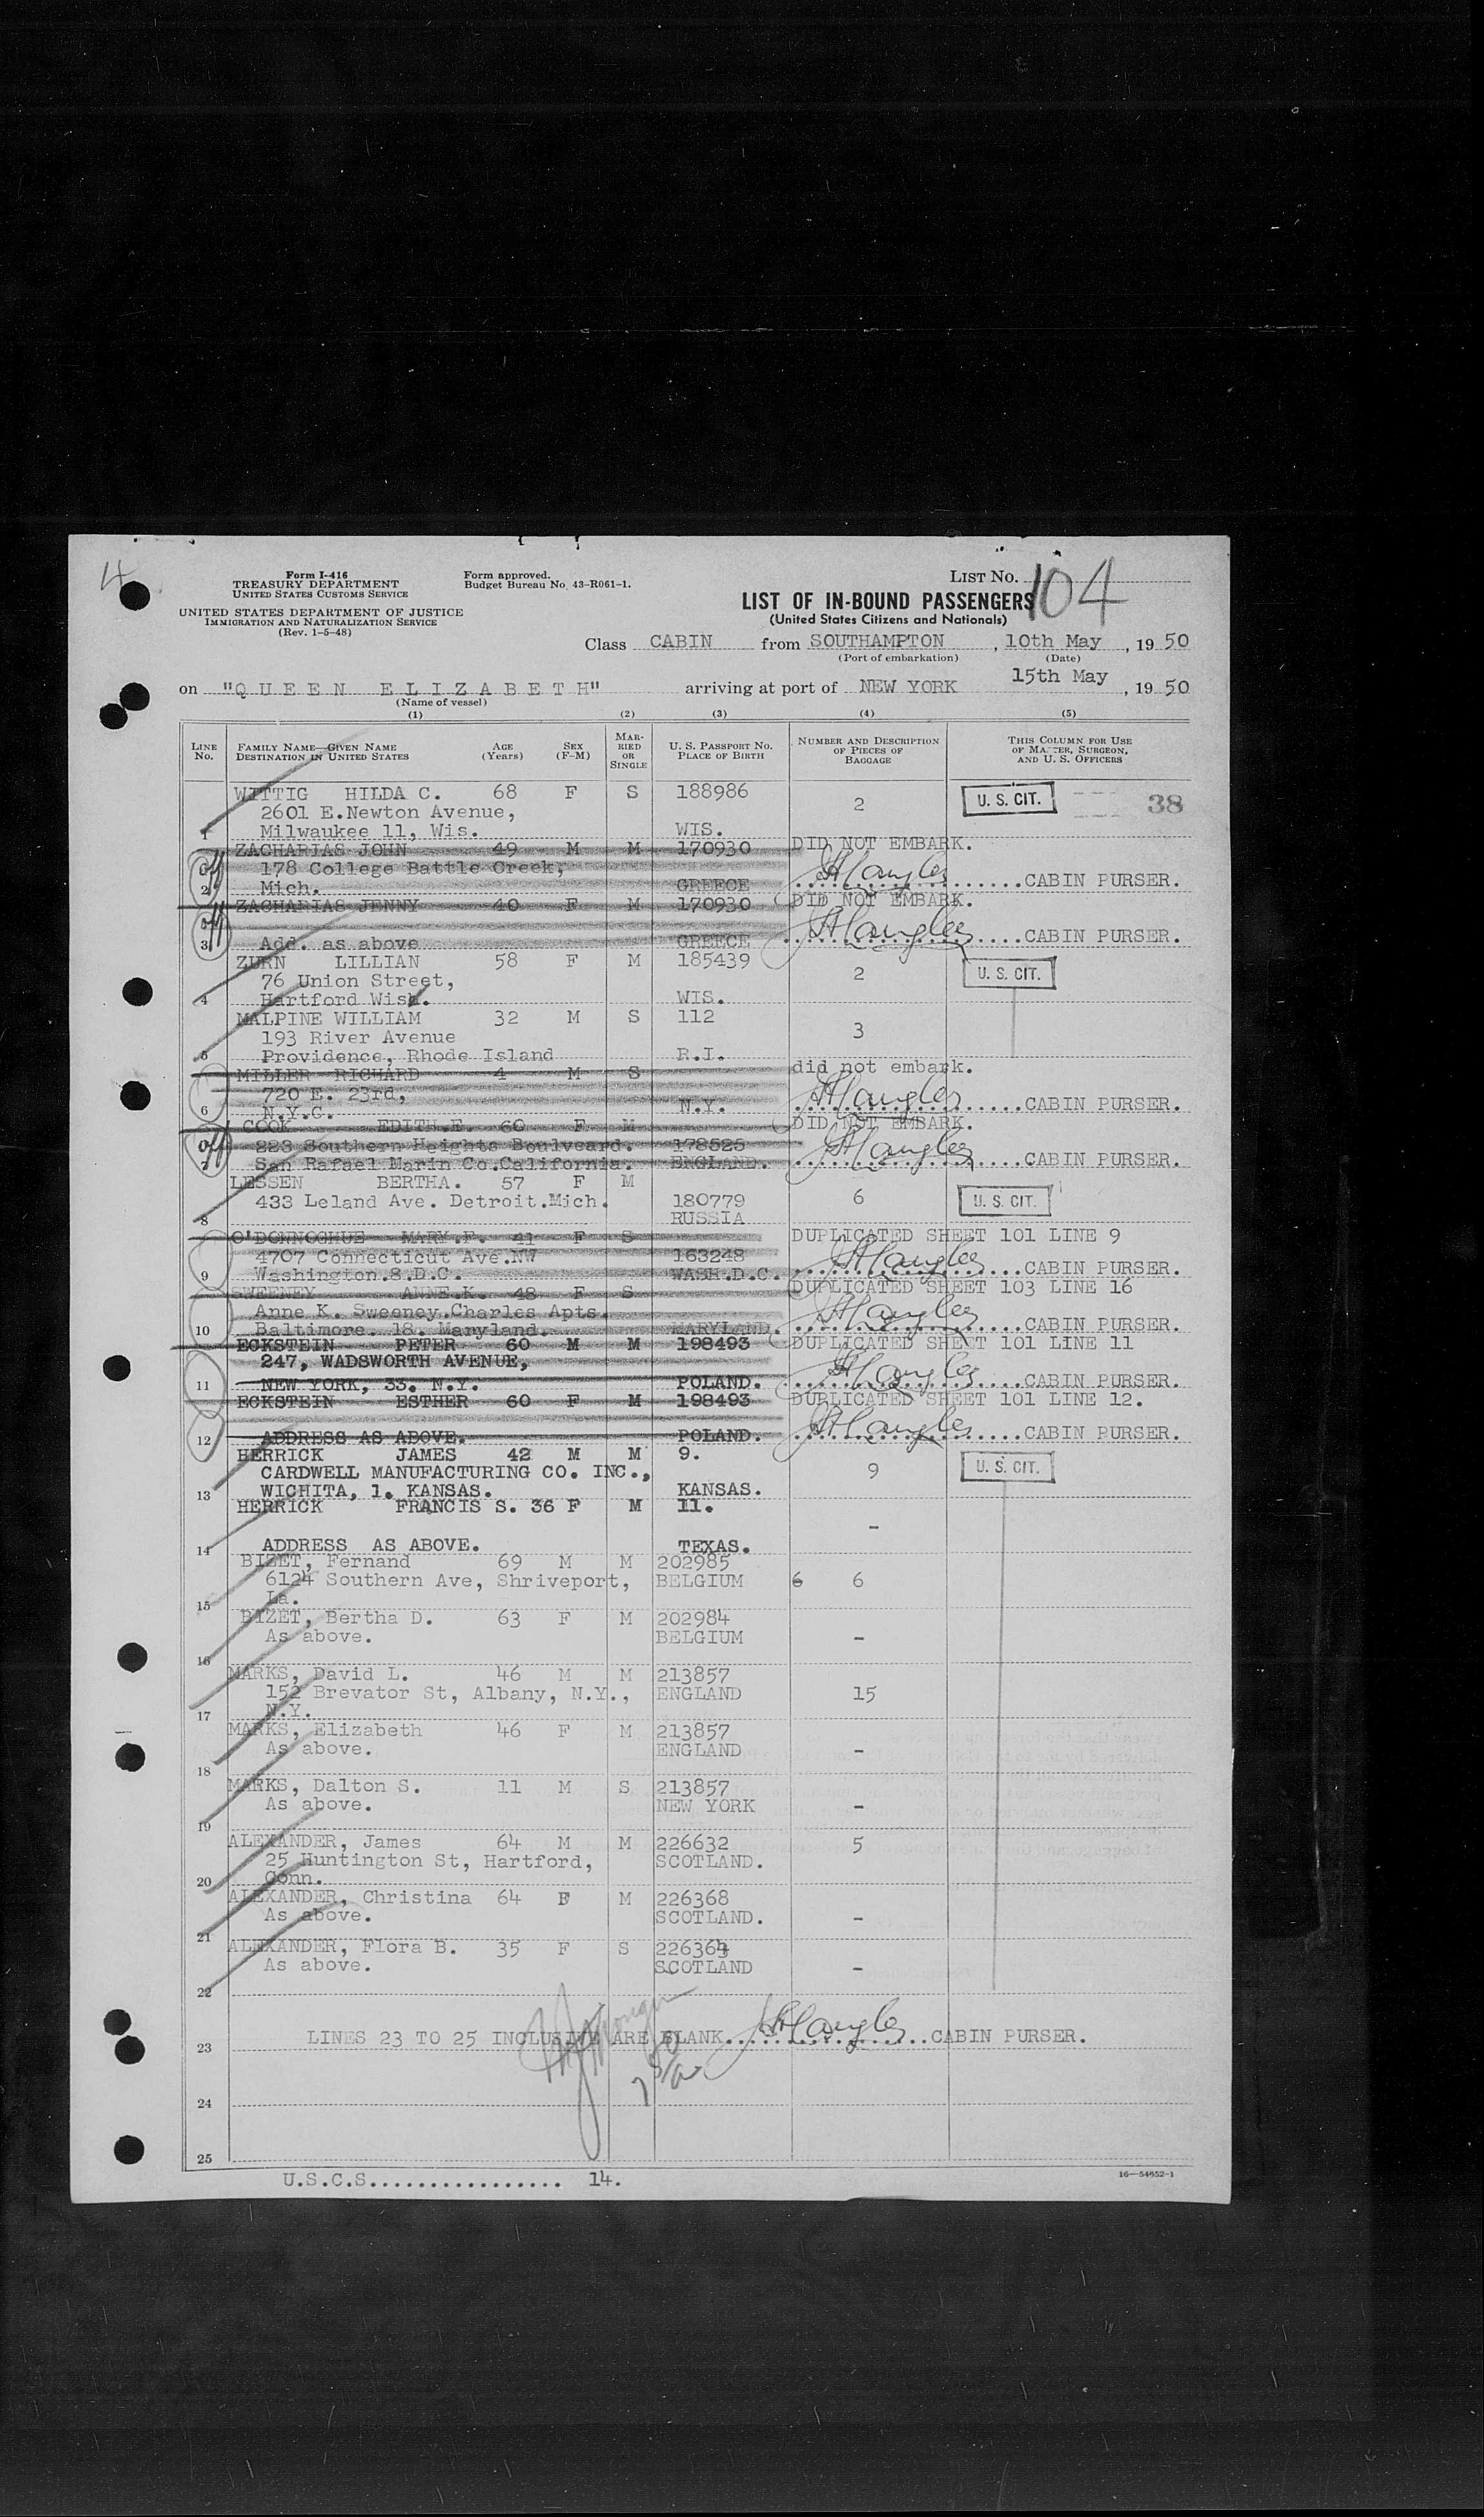 4
Form I-416
TREASURY DEPARTMENT
UNITED STATES CUSTOMS SERVICE
UNITED STATES DEPARTMENT OF JUSTICE
IMMIGRATION AND NATURALIZATION SERVICE
(Rev. 1-5-48)
Form approved.
Budget Bureau No. 43-R061-1.
LIST NO. 104
LIST OF IN-BOUND PASSENGERS
(United States Citizens and Nationals)
Class CABIN from SOUTHAMPTON, 10th May, 1950
(Port of embarkation) (Date)
on "QUEEN ELIZABETH" arriving at port of NEW YORK 15th May, 1950
(Name of vessel)
(1) (2) (3) (4) (5)
LINE NO. FAMILY NAME—GIVEN NAME DESTINATION IN UNITED STATES AGE (Years) SEX (F-M) MARRIED OR SINGLE U. S. PASSPORT NO. PLACE OF BIRTH NUMBER AND DESCRIPTION OF PIECES OF BAGGAGE THIS COLUMN FOR USE OF MASTER, SURGEON, AND U. S. OFFICERS
WITTIG HILDA C. 68 F S 188986
2601 E.Newton Avenue, 2 U. S. CIT. 38
1 Milwaukee 11, Wis. WIS.
ZACHARIAS JOHN 49 M M 170930 DID NOT EMBARK.
178 College Battle Creek,
2 Mich. GREECE CABIN PURSER.
ZACHARIAS JENNY 40 F M 170930 DID NOT EMBARK.
3 Add. as above GREECE CABIN PURSER.
ZURN LILLIAN 58 F M 185439
76 Union Street, 2 U. S. CIT.
4 Hartford Wis. WIS.
MALPINE WILLIAM 32 M S 112
193 River Avenue 3
5 Providence, Rhode Island R.I.
MILLER RICHARD 4 M S did not embark.
720 E. 23rd,
6 N.Y.C. N.Y. CABIN PURSER.
COOK EDITH.E. 60 F M DID NOT EMBARK.
223 Southern Heights Boulveard. 178525
7 San Rafael Marin Co.California. ENGLAND. CABIN PURSER.
LESSEN BERTHA. 57 F M
433 Leland Ave. Detroit.Mich. 180779 6 U. S. CIT.
8 RUSSIA
O'DONNOGHUE MARY.F. 41 F S DUPLICATED SHEET 101 LINE 9
4707 Connecticut Ave.NW 163248
9 Washington.8.D.C. WASH.D.C. CABIN PURSER.
SWEENEY ANNE.K. 48 F S DUPLICATED SHEET 103 LINE 16
Anne K. Sweeney.Charles Apts.
10 Baltimore. 18. Maryland. MARYLAND. CABIN PURSER.
ECKSTEIN PETER 60 M M 198493 DUPLICATED SHEET 101 LINE 11
247, WADSWORTH AVENUE,
11 NEW YORK, 33. N.Y. POLAND. CABIN PURSER.
ECKSTEIN ESTHER 60 F M 198493 DUPLICATED SHEET 101 LINE 12.
12 ADDRESS AS ABOVE. POLAND. CABIN PURSER.
HERRICK JAMES 42 M M 9.
CARDWELL MANUFACTURING CO. INC., 9 U. S. CIT.
13 WICHITA, 1. KANSAS. KANSAS.
HERRICK FRANCIS S. 36 F M 11.
-
14 ADDRESS AS ABOVE. TEXAS.
BIZET, Fernand 69 M M 202985
6124 Southern Ave, Shriveport, BELGIUM 6 6
15 La.
BIZET, Bertha D. 63 F M 202984
As above. BELGIUM -
16
MARKS, David L. 46 M M 213857
152 Brevator St, Albany, N.Y., ENGLAND 15
17 N.Y.
MARKS, Elizabeth 46 F M 213857
As above. ENGLAND -
18
MARKS, Dalton S. 11 M S 213857
As above. NEW YORK -
19
ALEXANDER, James 64 M M 226632 5
25 Huntington St, Hartford, SCOTLAND.
20 Conn.
ALEXANDER, Christina 64 F M 226368
As above. SCOTLAND. -
21
ALEXANDER, Flora B. 35 F S 226364
As above. SCOTLAND -
22
LINES 23 TO 25 INCLUSIVE ARE BLANK. CABIN PURSER.
23
24
25
U.S.C.S................. 14.
16—54652-1